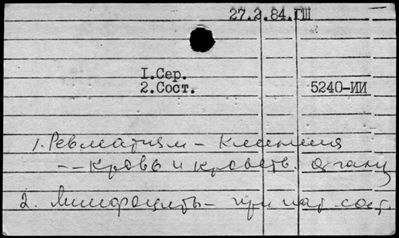 27.2.84.ГШ
1.Сер.
2.Сост. 5240-ИИ
1. Ревматизм – Клиника
-- кровь и кроветв. органы
2. Лимфоциты – при пат. сост.